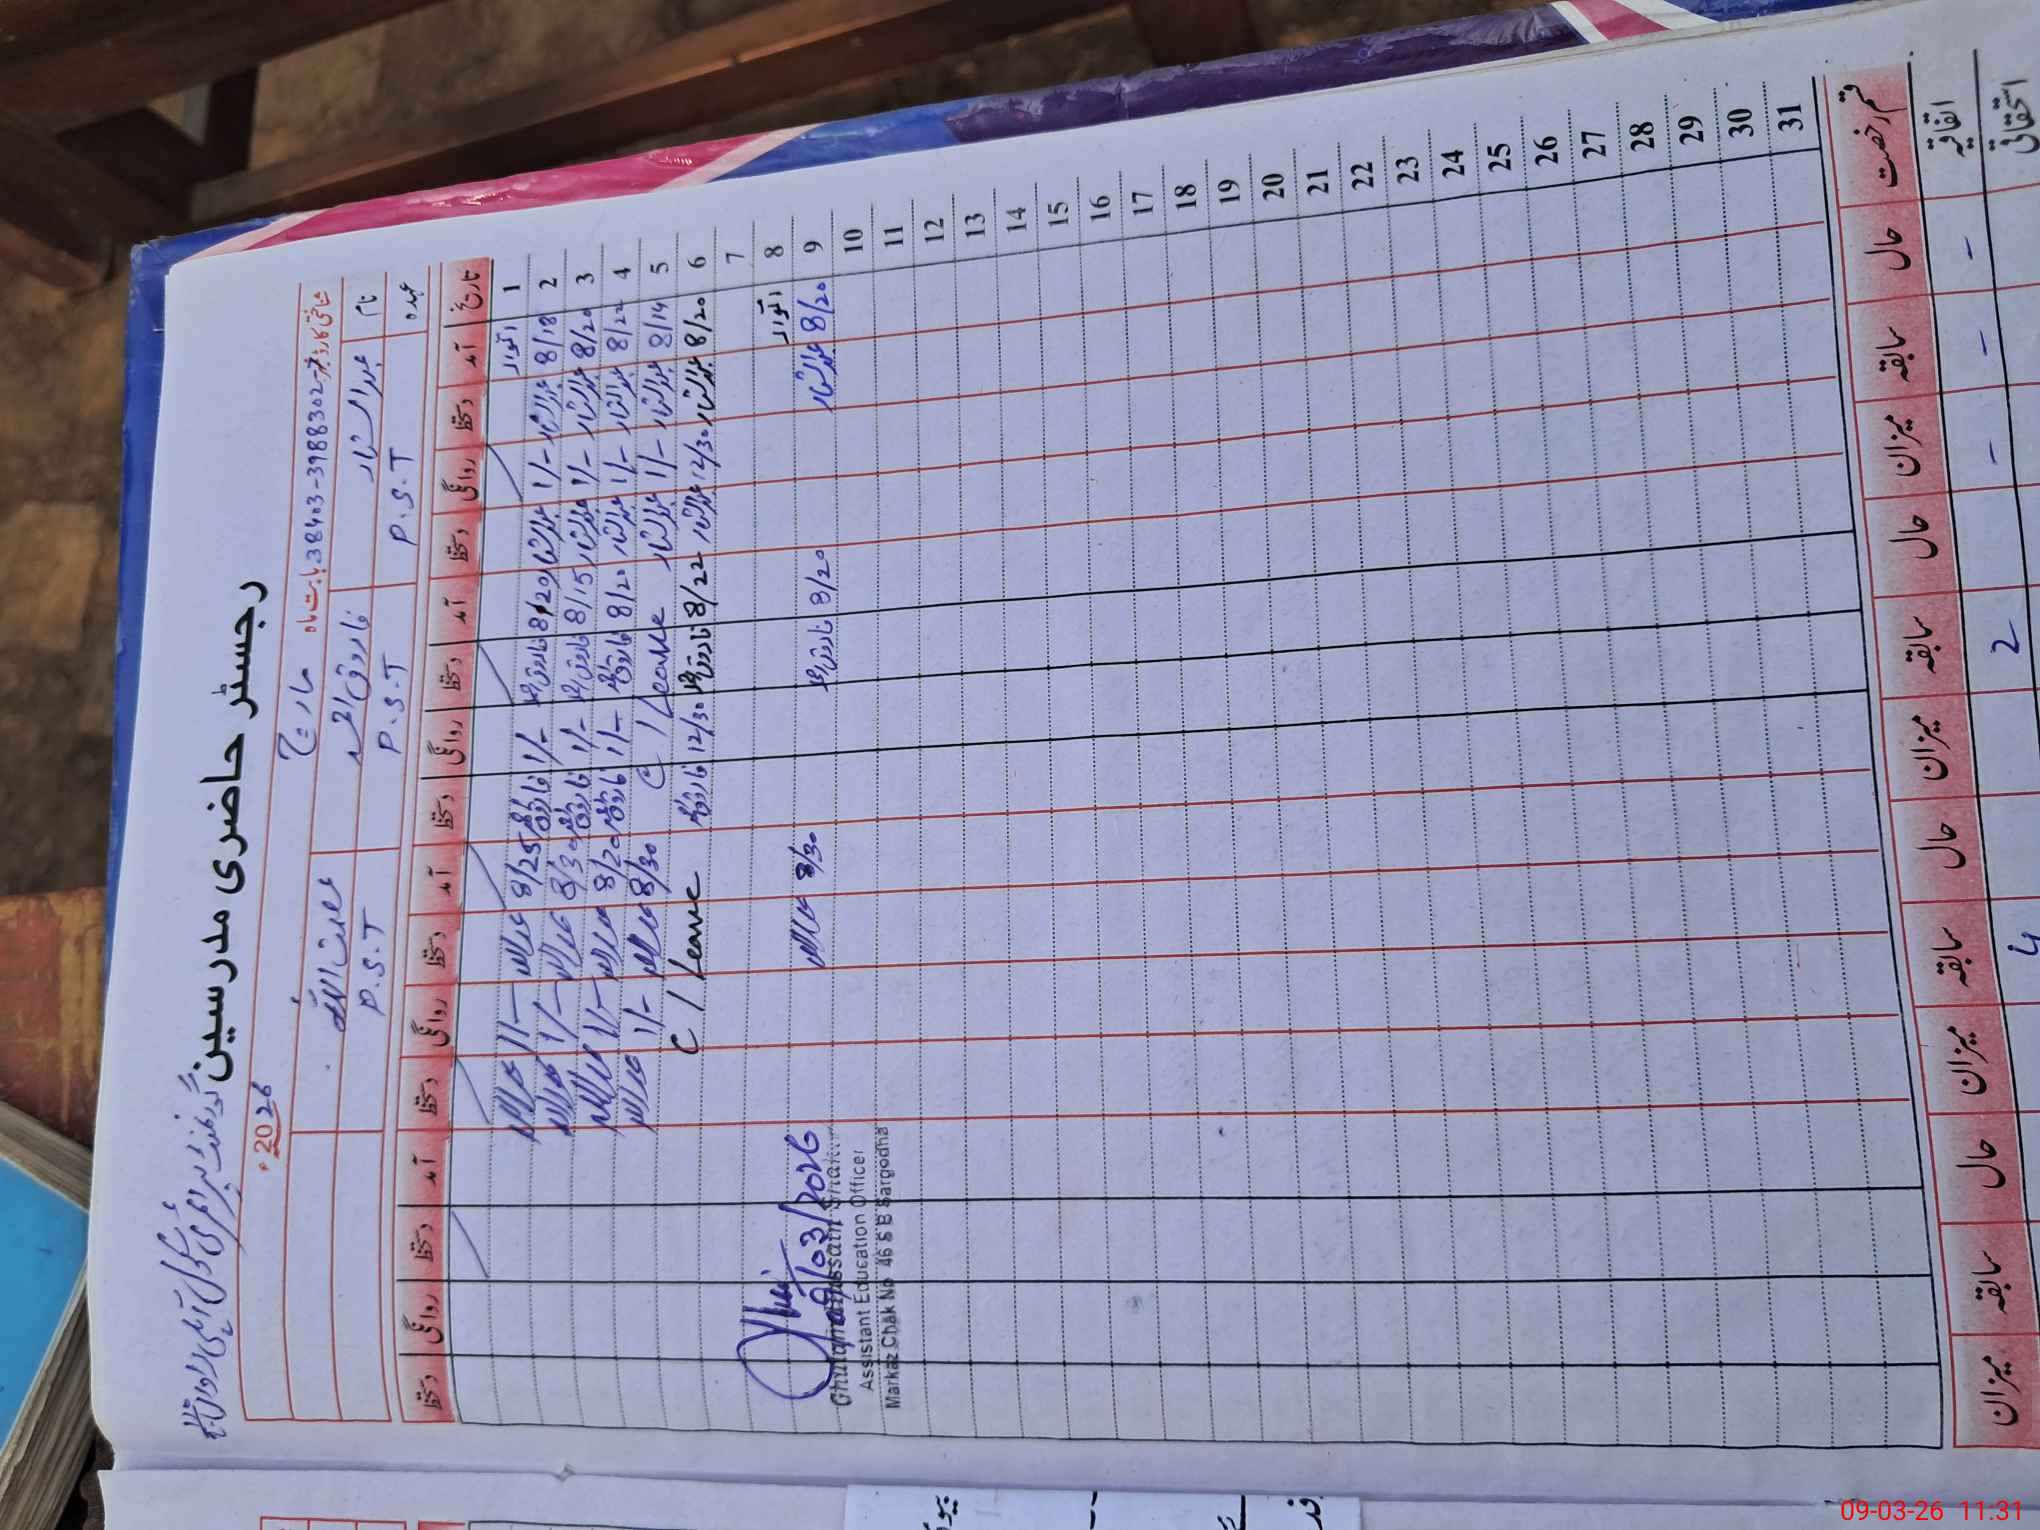 رجسٹر حاضری مدرسین
2026
مارچ
بابت ماہ
38403-3988302-7
نام
عبدالستار
فاروق احمد
عصمت اللہ
عہدہ
P.S.T
P.S.T
P.S.T
تاریخ آمد دستخط روانگی دستخط آمد دستخط روانگی دستخط آمد دستخط روانگی دستخط آمد دستخط روانگی دستخط
1 اتوار
2 8/18 عبدالستار 1/- عبدالستار 8/20 فاروق 1/- فاروق 8/25 1/-
3 8/20 عبدالستار 1/- عبدالستار 8/15 فاروق 1/- فاروق 8/30 1/-
4 8/22 عبدالستار 1/- عبدالستار 8/20 فاروق 1/- فاروق 8/20 1/-
5 8/14 عبدالستار 1/- عبدالستار C/Leave 8/30 1/-
6 8/20 عبدالستار 12/30 عبدالستار 8/22 فاروق 12/30 فاروق C/Leave
7
8 اتوار
9 8/20 عبدالستار 8/20 فاروق 8/30
9/03/2026
10
Ghulam Hussain Shakir
Assistant Education Officer
11
Markaz Chak No 46 S B Sargodha
12
13
14
15
16
17
18
19
20
21
22
23
24
25
26
27
28
29
30
31
قسم رخصت حال سابقہ میزان حال سابقہ میزان حال سابقہ میزان حال سابقہ میزان
اتفاقیہ - - -
استحقاقی 2 4
09-03-26 11:31